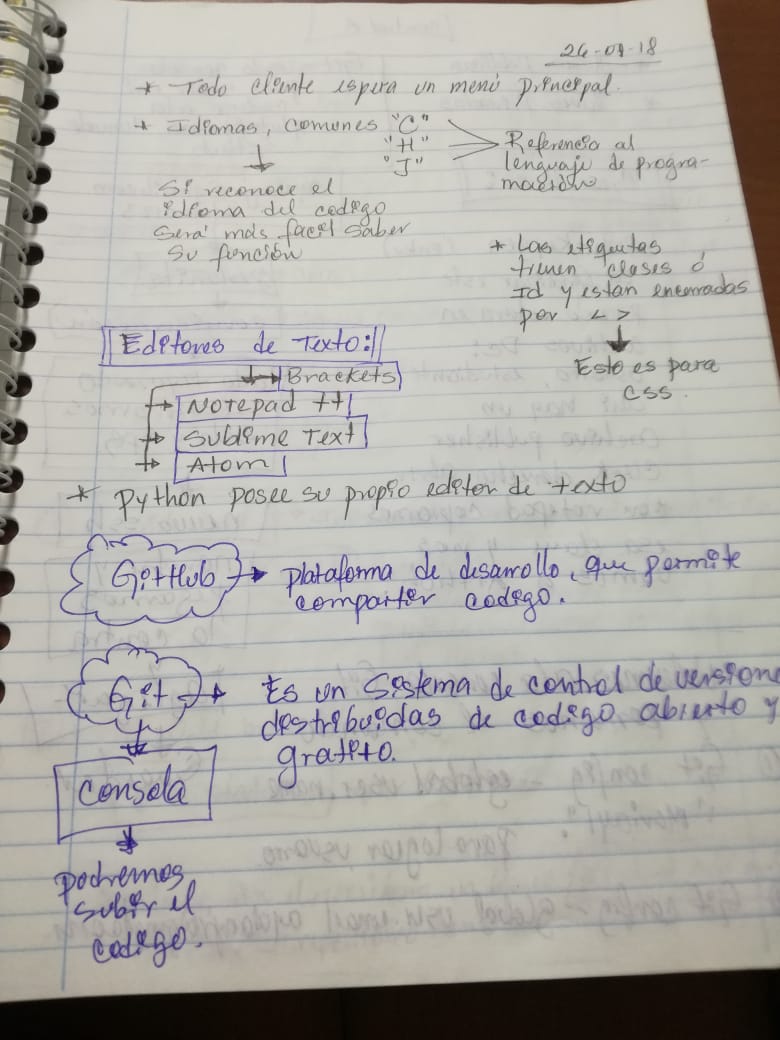 26-09-18
* Todo cliente espera un menú principal.
* Idiomas, comunes "C"
"H"
"J"
Referencia al
lenguaje de progra-
mación
Si reconoce el
idioma del codigo
será más facil saber
su función
* Las etiquetas
tienen clases ó
Id y estan encerradas
por < >
Esto es para
css.
Editores de Texto:
Brackets
Notepad ++
Sublime Text
Atom
* Python posee su propio editor de texto
GitHub → plataforma de desarrollo, que permite
compartir codigo.
Git → Es un Sistema de control de versione
distribuidas de codigo abierto y
gratito.
Consola
podremos
subir el
codigo.